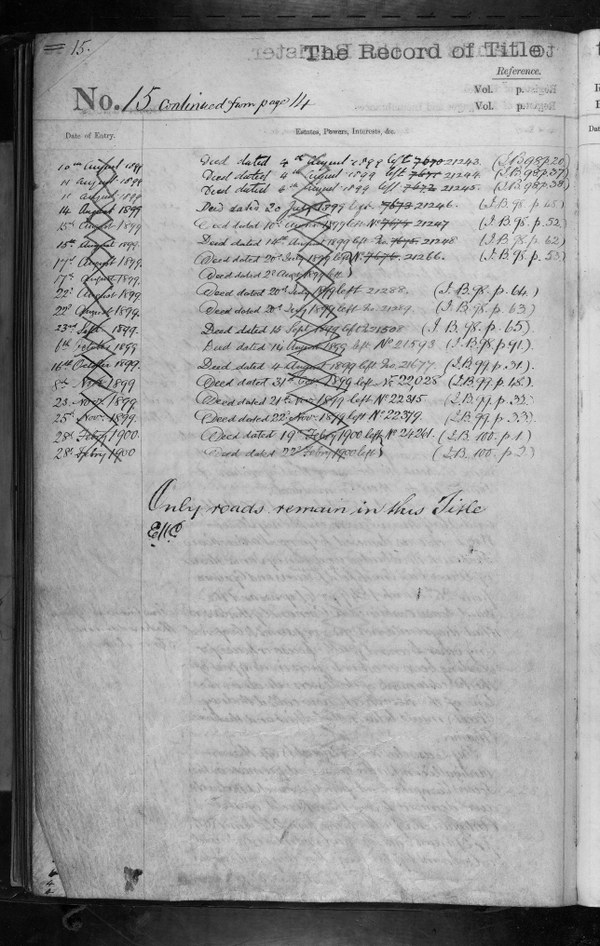 15.
The Record of Title
Reference.
Vol. p.
No. 15 continued from page 14 Vol. p.
Date of Entry. Estates, Powers, Interests, &c.
10th August 1899 Deed dated 4th August 1899 left 7670 21243. (I.B. 98 p. 20)
11 August 1899 Deed dated 4th August 1899 left 7671 21244. (I.B. 98 p. 37)
11 August 1899 Deed dated 4th August 1899 left 7672 21245. (I.B. 98 p. 38)
14 August 1899 Deed dated 20 July 1899 left 7673 21246. (I.B. 98. p. 45)
15th August 1899 Deed dated 10th August 1899 left No. 7674 21247 (I.B. 98. p. 52.
15th August 1899. Deed dated 14th August 1899 left No. 7675 21248 (I.B. 98. p. 62)
17th August 1899. Deed dated 20th July 1899 left No. 7676. 21266. (I.B. 98. p. 53)
17th August 1899. Deed dated 2d Augt 1899 left
22d August 1899 Deed dated 20th July 1899 left 21288. (I.B. 98. p. 64.)
22d August 1899. Deed dated 20th July 1899 left No. 21289. (I.B. 98. p. 63.)
23rd Sept 1899. Deed dated 15 Sept 1899 left 21508 (I.B. 98. p. 65).
6th October 1899 Deed dated 14 August 1899 left No 21593 (I.B. 98. p. 91.)
16th October 1899. Deed dated 4 August 1899 left No. 21677. (I.B. 99. p. 31.)
8th Nov. 1899 Deed dated 31st Oct 1899 left No 22028 (I.B. 99. p. 45.)
23 Novr 1899 Deed dated 21st Nov. 1899 left No 22315 (I.B. 99. p. 32.)
25th Nov. 1899. Deed dated 22 Nov. 1899 left No 22379. (I.B. 99. p. 33.)
28th Feby 1900. Deed dated 19 Feby 1900 left No 24261. (I.B. 100. p. 1.)
28th Feby 1900 Deed dated 22 Feby 1900 left (I.B. 100. p. 2.)
Only roads remain in this Title